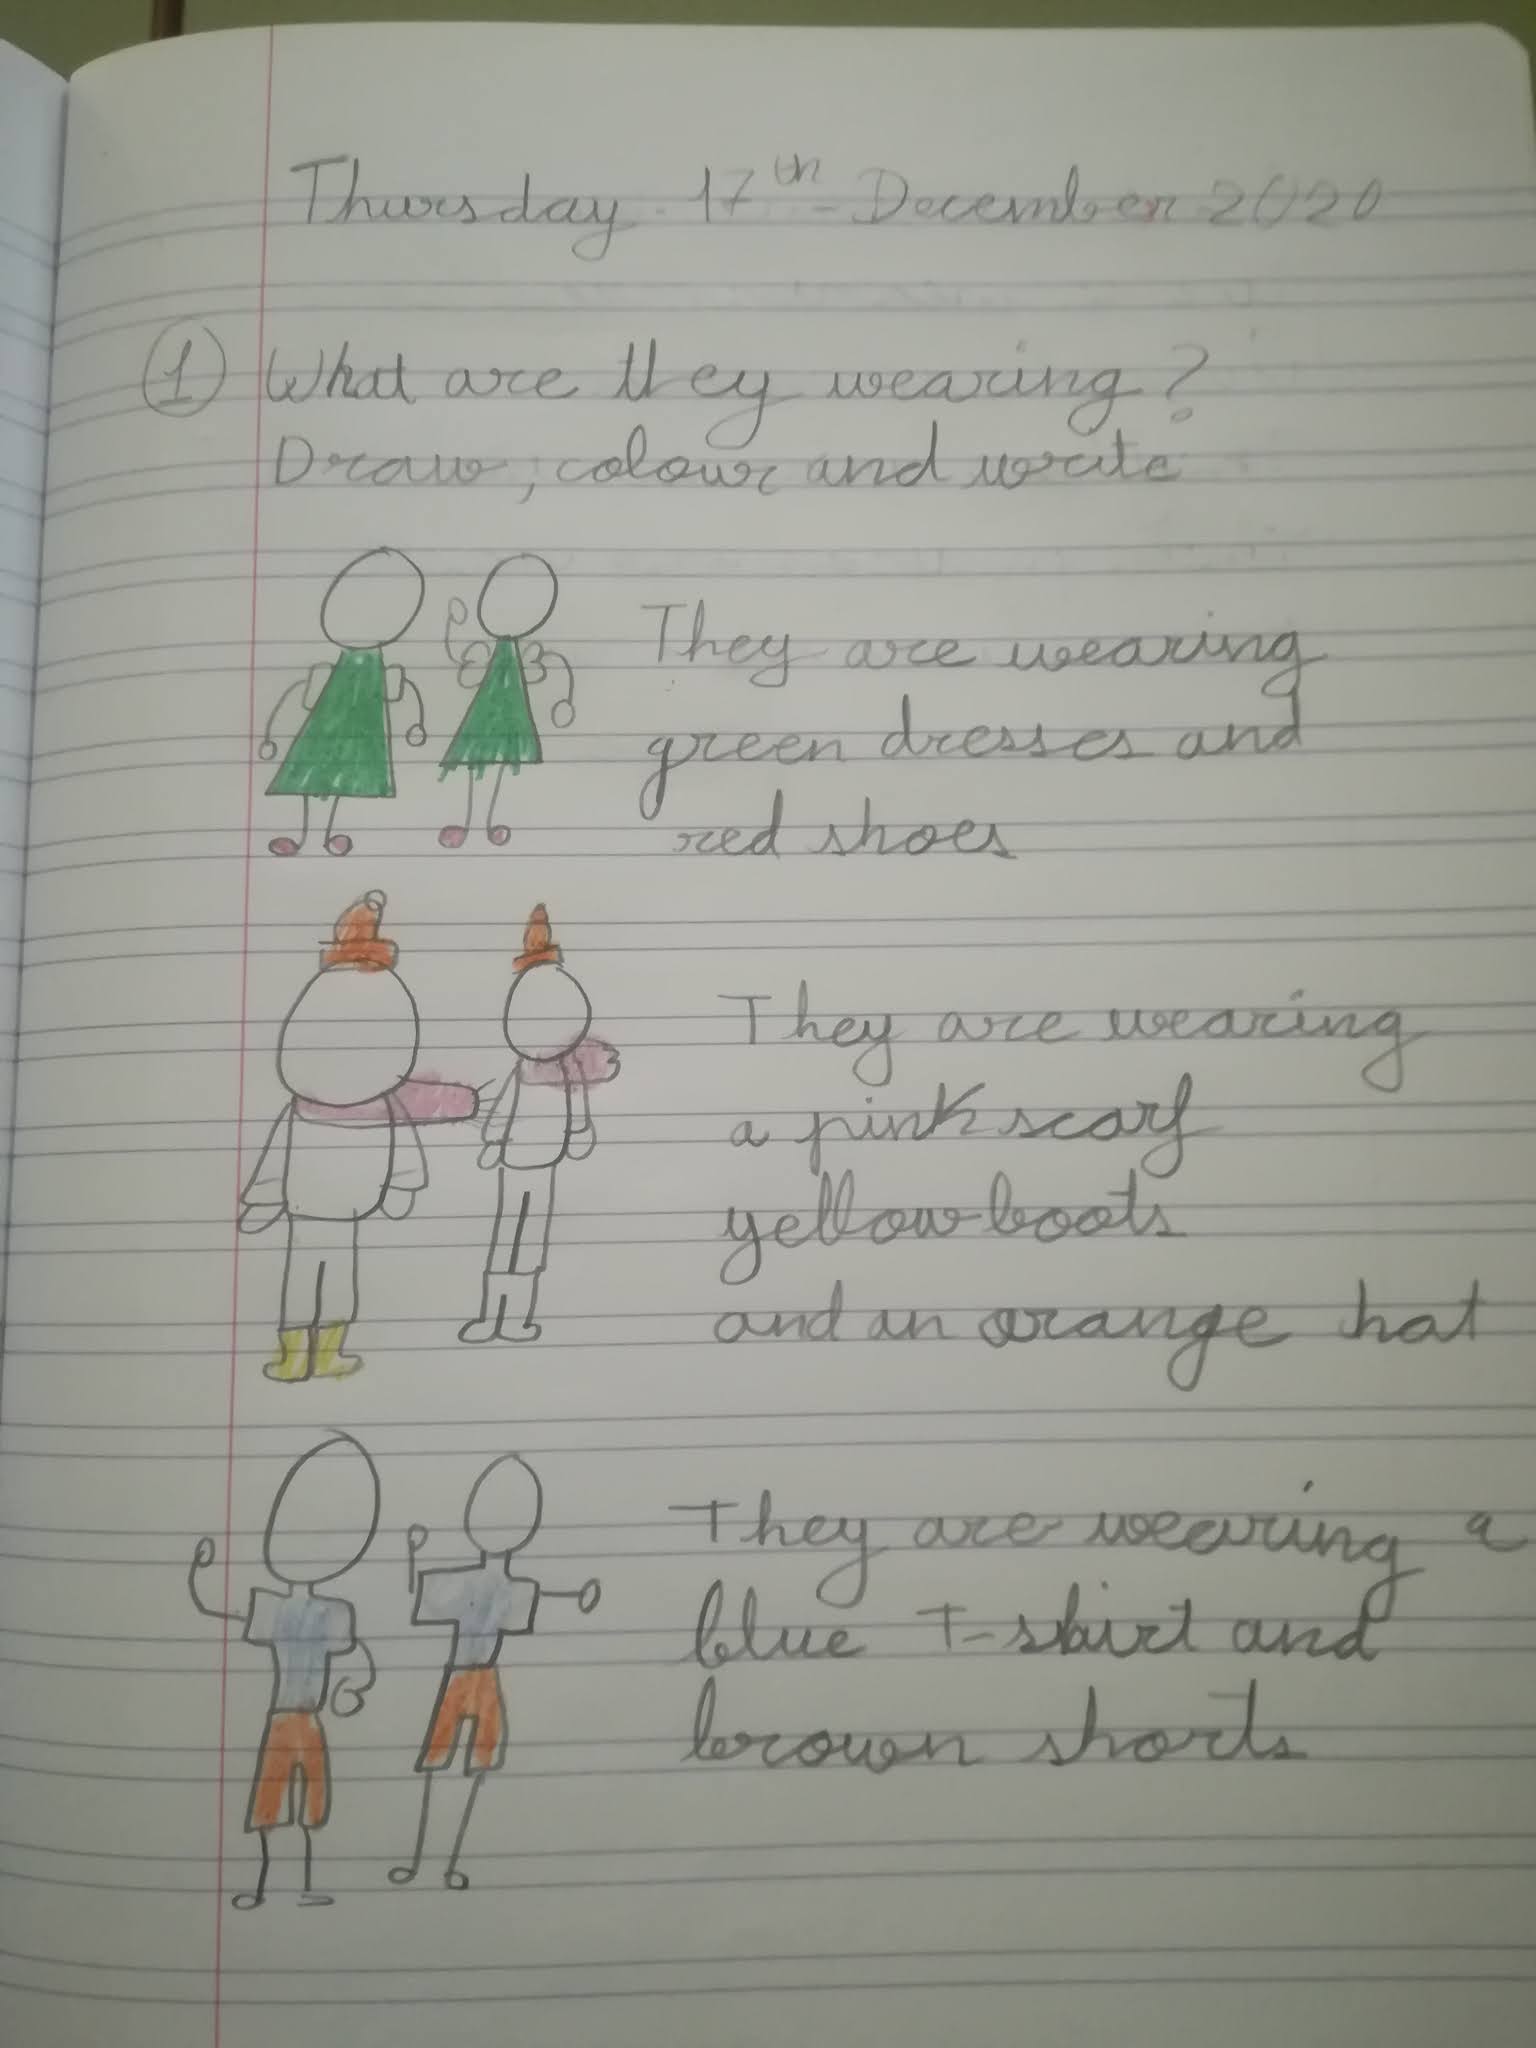 Thursday 17th December 2020
1 What are they wearing?
Draw, colour and write
They are wearing
green dresses and
red shoes
They are wearing
a pink scarf
yellow boots
and an orange hat
They are wearing a
blue T-shirt and
brown shorts